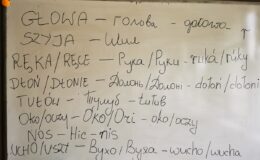 GŁOWA – голова – gołowa
SZYJA – Шия
RĘKA/RĘCE – Рука/Руки – ruka/ruky
DŁOŃ/DŁONIE – Долонь/Долоні – dołoń/dołoni
TUŁÓW – Тулуб – tułub
OKO/OCZY – Око/Очі – oko/oczy
NOS – Ніс – nis
UCHO/USZY – Вухо/Вуха – wucho/wucha